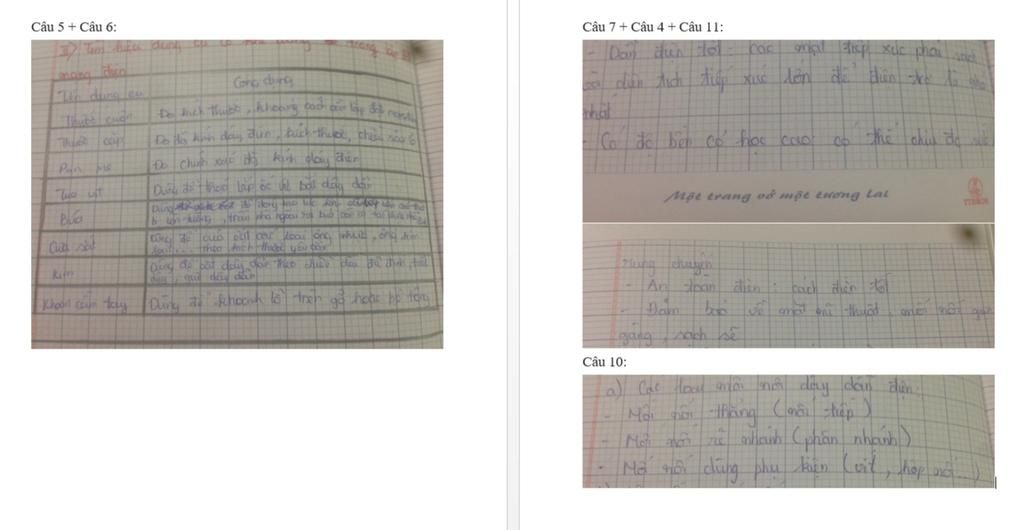 Câu 5 + Câu 6:
II) Tìm hiểu dụng cụ trong lắp đặt
mạng điện
Tên dụng cụ
Công dụng
Thước cuộn
Đo kích thước, khoảng cách cần lắp đặt
Thước cặp
Đo độ kính dây điện, kích thước, chiều sâu lỗ
Pan me
Đo chính xác độ kính dây điện
Tua vít
Dùng để tháo lắp ốc vít bắt dây dẫn
Búa
Dùng để đóng tạo lực
Cưa sắt
Dùng để cưa cắt các loại ống nhựa, ống kim
loại... theo kích thước yêu cầu
Kìm
Dùng để cắt dây dẫn theo chiều dài đã định, tuốt
dây, giữ dây dẫn
Khoan cầm tay
Dùng để khoanh lỗ trên gỗ hoặc bê tông
Câu 7 + Câu 4 + Câu 11:
- Dẫn điện tốt: các mặt tiếp xúc phải sạch
diện tích tiếp xúc lớn để điện trở là nhỏ
nhất
- Có độ bền cơ học cao: có thể chịu đc sức
Một trang vở một tương lai
chuyển
- An toàn điện: cách điện tốt
- Đảm bảo về mặt mĩ thuật, mối nối gọn
gàng, sạch sẽ
Câu 10:
a) Các loại mối nối dây dẫn điện:
- Mối nối thẳng (nối tiếp)
- Mối nối rẽ nhánh (phân nhánh)
- Mối nối dùng phụ kiện (vít, hộp nối...)